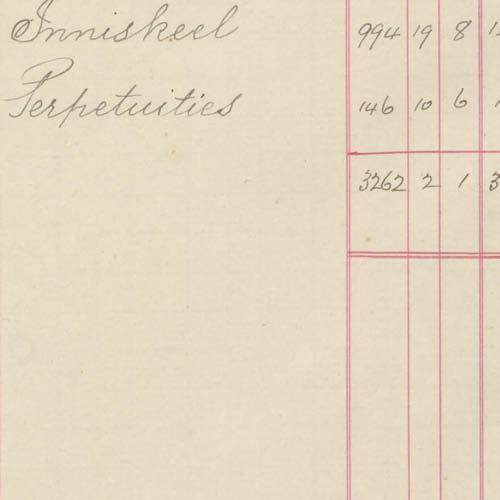 Inniskeel 994 19 8 1
Perpetuities 146 10 6 1
3262 2 1 3